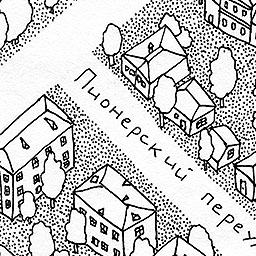 Пионерский переу